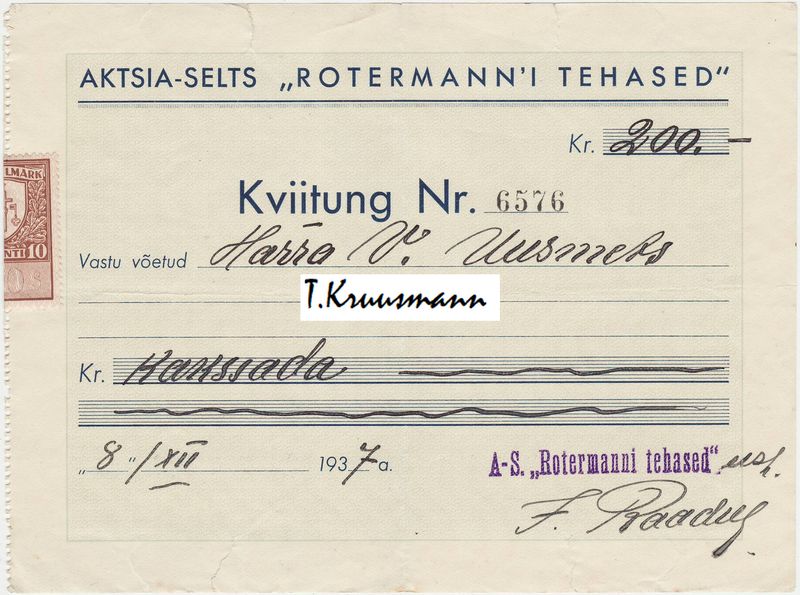 AKTSIA-SELTS „ROTERMANN'I TEHASED"
Kr. 200.—
Kviitung Nr. 6576
Vastu võetud Härra V. Uusmets
T.Kruusmann
Kr. Kakssada
„8"/XII 1937 a.
A-S. „Rotermanni tehased" usk.
LMARK
10